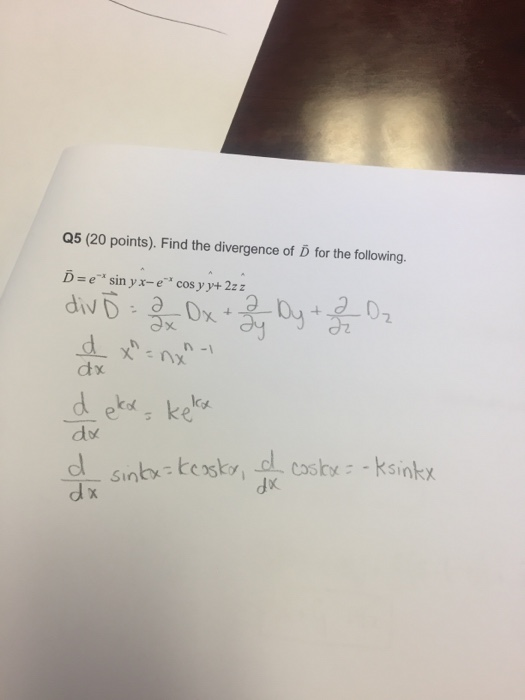 Q5 (20 points). Find the divergence of D̄ for the following.
D̄ = e⁻ˣ sin y x̂ − e⁻ˣ cos y ŷ + 2z ẑ
div D⃗ = ∂/∂x Dx + ∂/∂y Dy + ∂/∂z Dz
d/dx xⁿ = nxⁿ⁻¹
d/dx eᵏˣ = keᵏˣ
d/dx sinkx = kcoskx, d/dx coskx = -ksinkx